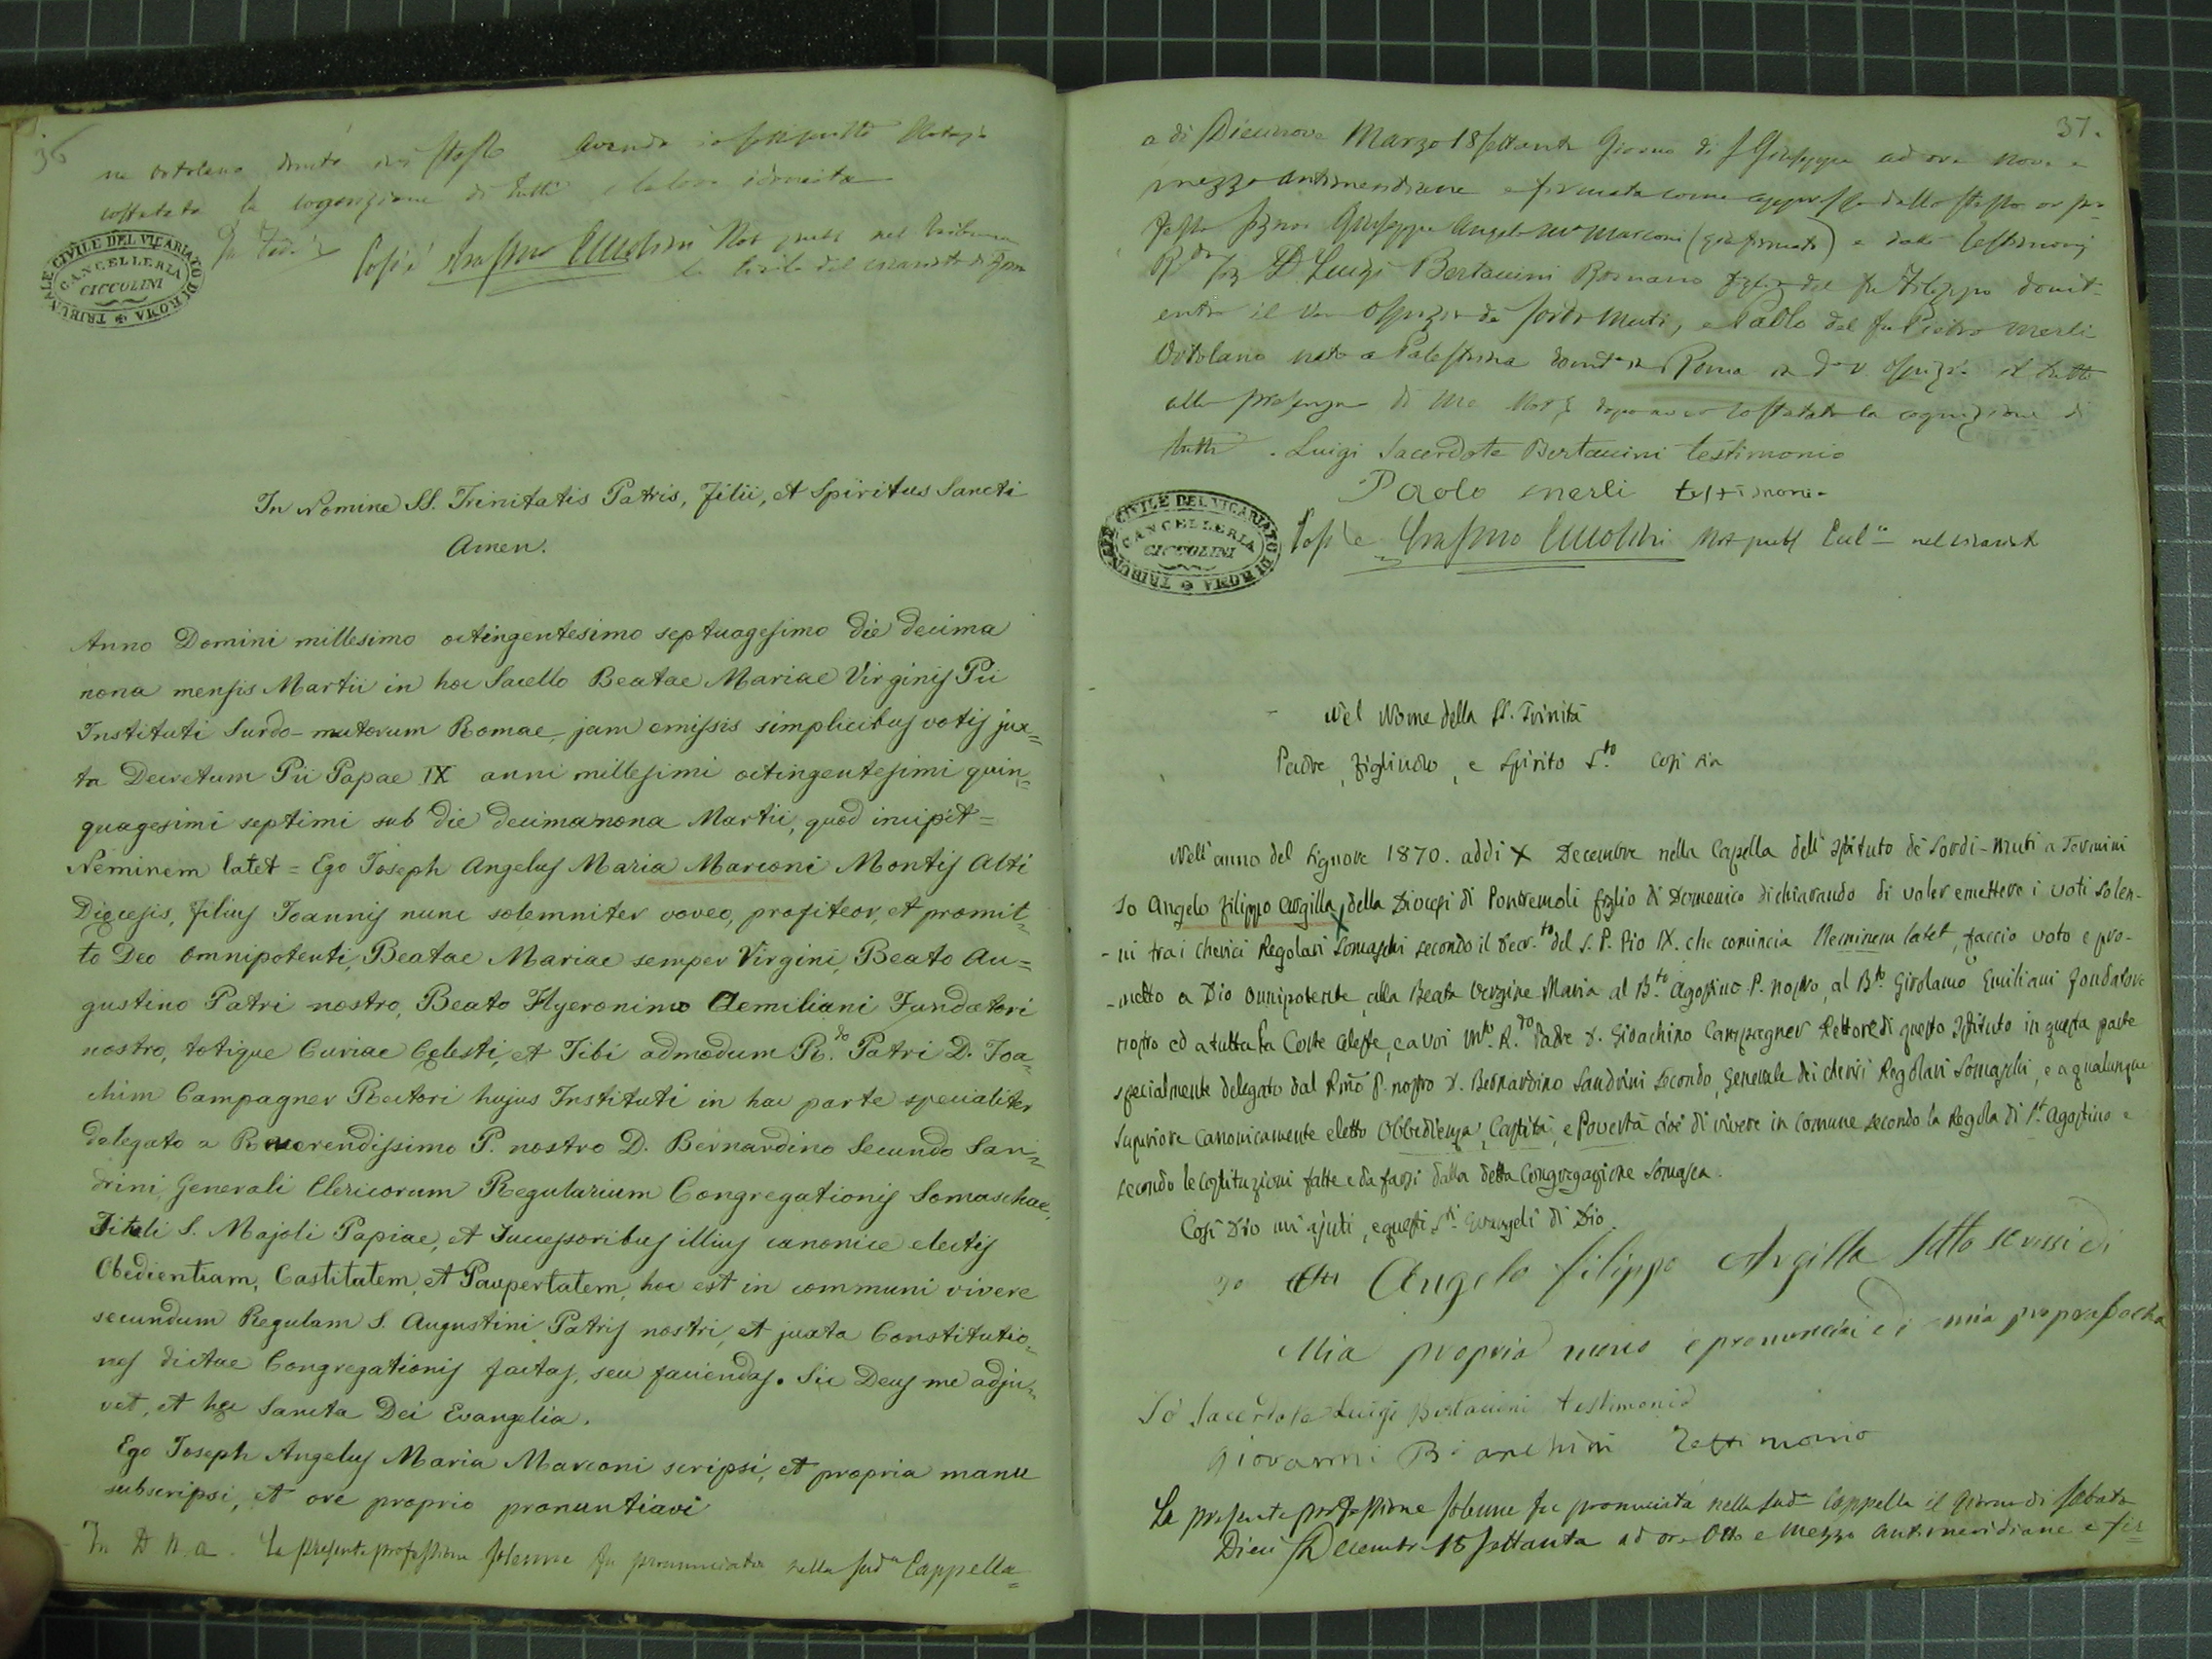 36
ne ortolano domto ivi stesso Avendo io sottoscritto Notaro
costatato la cognizione di tutti e la loro idoneità
In Fede
Così è Erasmo Ciccolini Not pubb nel Tribuna
le Civile del Vicariato di Roma
TRIBUNALE CIVILE DEL VICARIATO DI ROMA
CANCELLERIA
CICCOLINI
In Nomine SS. Trinitatis Patris, Filii, et Spiritus Sancti
Amen.
Anno Domini millesimo octingentesimo septuagesimo die decima
nona mensis Martii in hoc Sacello Beatae Mariae Virginis Pii
Instituti Surdo-mutorum Romae, jam emissis simplicibus votis jux=
ta Decretum Pii Papae IX anni millesimi octingentesimi quin=
quagesimi septimi sub die decimanona Martii, quod incipit =
Neminem latet = Ego Joseph Angelus Maria Marconi Montis Alti
Dioecesis, filius Joannis nunc solemniter voveo, profiteor, et promit=
to Deo Omnipotenti, Beatae Mariae semper Virgini, Beato Au=
gustino Patri nostro, Beato Hyeronimo Aemiliani Fundatori
nostro, totique Curiae Celesti, et Tibi admodum R.do Patri D. Joa=
chim Campagner Rectori hujus Instituti in hac parte specialiter
delegato a Reverendissimo P. nostro D. Bernardino Secundo San=
drini Generali Clericorum Regularium Congregationis Somaschae,
Tituli S. Majoli Papiae, et Successoribus illius canonice electis
Obedientiam, Castitatem, et Paupertatem, hoc est in communi vivere
secundum Regulam S. Augustini Patris nostri, et juxta Constitutio=
nes dictae Congregationis factas, seu faciendas. Sic Deus me adju=
vet, et hec Sancta Dei Evangelia.
Ego Joseph Angelus Maria Marconi scripsi, et propria manu
subscripsi, et ore proprio pronuntiavi
In D. N. a. La presente professione solenne fu pronunciata nella sud.a Cappella=
37.
a di Diecinove Marzo 18settanta Giorno di S Giuseppe ad ore nove e
mezzo antimeridiane e firmata come appresso dallo stesso or pro
fesso Signor Giuseppe Angelo Ma Marconi (già firmato) e dalli Testimonj
R.do Sig D. Luigi Bertaccini Romano figlio del fu Filippo domit.
entro il Ven Ospizio de Sordo Muti, e Paolo del fu Pietro Merli
Ortolano nato a Palestrina domto in Roma in do V Ospizio il tutto
alla presenza di me Not dopo avere costatato la cognizione di
tutti. Luigi Sacerdote Bertaccini testimonio
Paolo merli testimonio
Così è Erasmo Ciccolini Not pubb nel Vicariato
TRIBUNALE CIVILE DEL VICARIATO DI ROMA
CANCELLERIA
CICCOLINI
Nel Nome della SS. Trinità
Padre, Figliuolo, e Spirito S.to Così sia
Nell'anno del Signore 1870. addi X Decembre nella Capella dell'Istituto de Sordi-Muti a Termini
Io Angelo Filippo Argilla della Diocesi di Pontremoli figlio di Domenico dichiarando di voler emettere i voti solen-
-ni tra i Cherici Regolari Somaschi secondo il Decr.to del S. P. Pio IX. che comincia Neminem latet, faccio voto e pro-
-metto a Dio Onnipotente, alla Beata Vergine Maria al B.to Agostino P. nostro, al B.to Girolamo Emiliani Fondatore
nostro ed a tutta la Corte Celeste, e a Voi M.to R.do Padre D. Gioachino Campagner Rettore di questo Istituto in questa parte
specialmente delegato dal Rmo P. nostro D. Bernardino Sandrini Secondo, Generale dei Cherici Regolari Somaschi, e a qualunque
Superiore canonicamente eletto Obbedienza, Castità, e Povertà cioè di vivere in comune secondo la Regola di S.t Agostino e
secondo le costituzioni fatte e da farsi dalla detta Congregazione Somasca.
Così Dio mi ajuti, e questi S.ti Evangeli di Dio.
Io Angelo filippo Argilla Sotto scrissi di
Mia propria mano e pronunciai di mia propria bocha
Io Sacerdote Luigi Bertaccini testimonio
Giovanni Bianchini Testimonio
La presente professione solenne fu pronunciata nella sud.a Cappella il giorno di Sabato
Dieci Decembre 18settanta ad ore Otto e mezzo antimeridiane e fir=